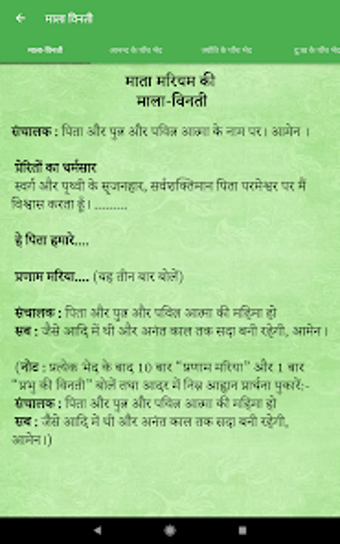 माला विनती
माला-विनती आनन्द के पाँच भेद ज्योति के पाँच भेद दुःख के पाँच भेद
माता मरियम की
माला-विनती
संचालक : पिता और पुत्र और पवित्र आत्मा के नाम पर। आमेन ।
प्रेरितों का धर्मसार
स्वर्ग और पृथ्वी के सृजनहार, सर्वशक्तिमान पिता परमेश्वर पर मैं
विश्वास करता हूँ। .........
हे पिता हमारे....
प्रणाम मरिया.... (यह तीन बार बोलें)
संचालक : पिता और पुत्र और पवित्र आत्मा की महिमा हो
सब : जैसे आदि में थी और अनंत काल तक सदा बनी रहेगी, आमेन।
(नोट : प्रत्येक भेद के बाद 10 बार “प्रणाम मरिया” और 1 बार
“प्रभु की विनती” बोलें तथा आदर में निम्न आह्वान प्रार्थना पुकारें:-
संचालक : पिता और पुत्र और पवित्र आत्मा की महिमा हो
सब : जैसे आदि में थी और अनंत काल तक सदा बनी रहेगी,
आमेन।)